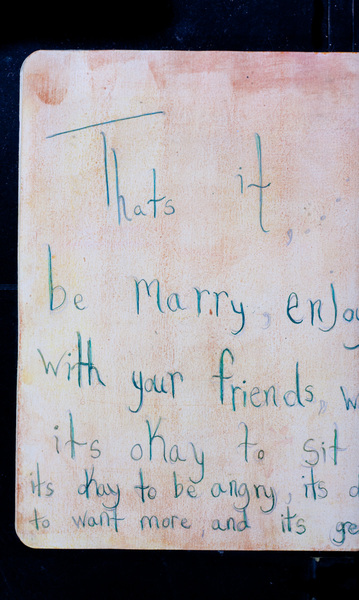 Thats it,
be marry, enjoy
with your friends,
its okay to sit
its okay to be angry, its
to want more, and its